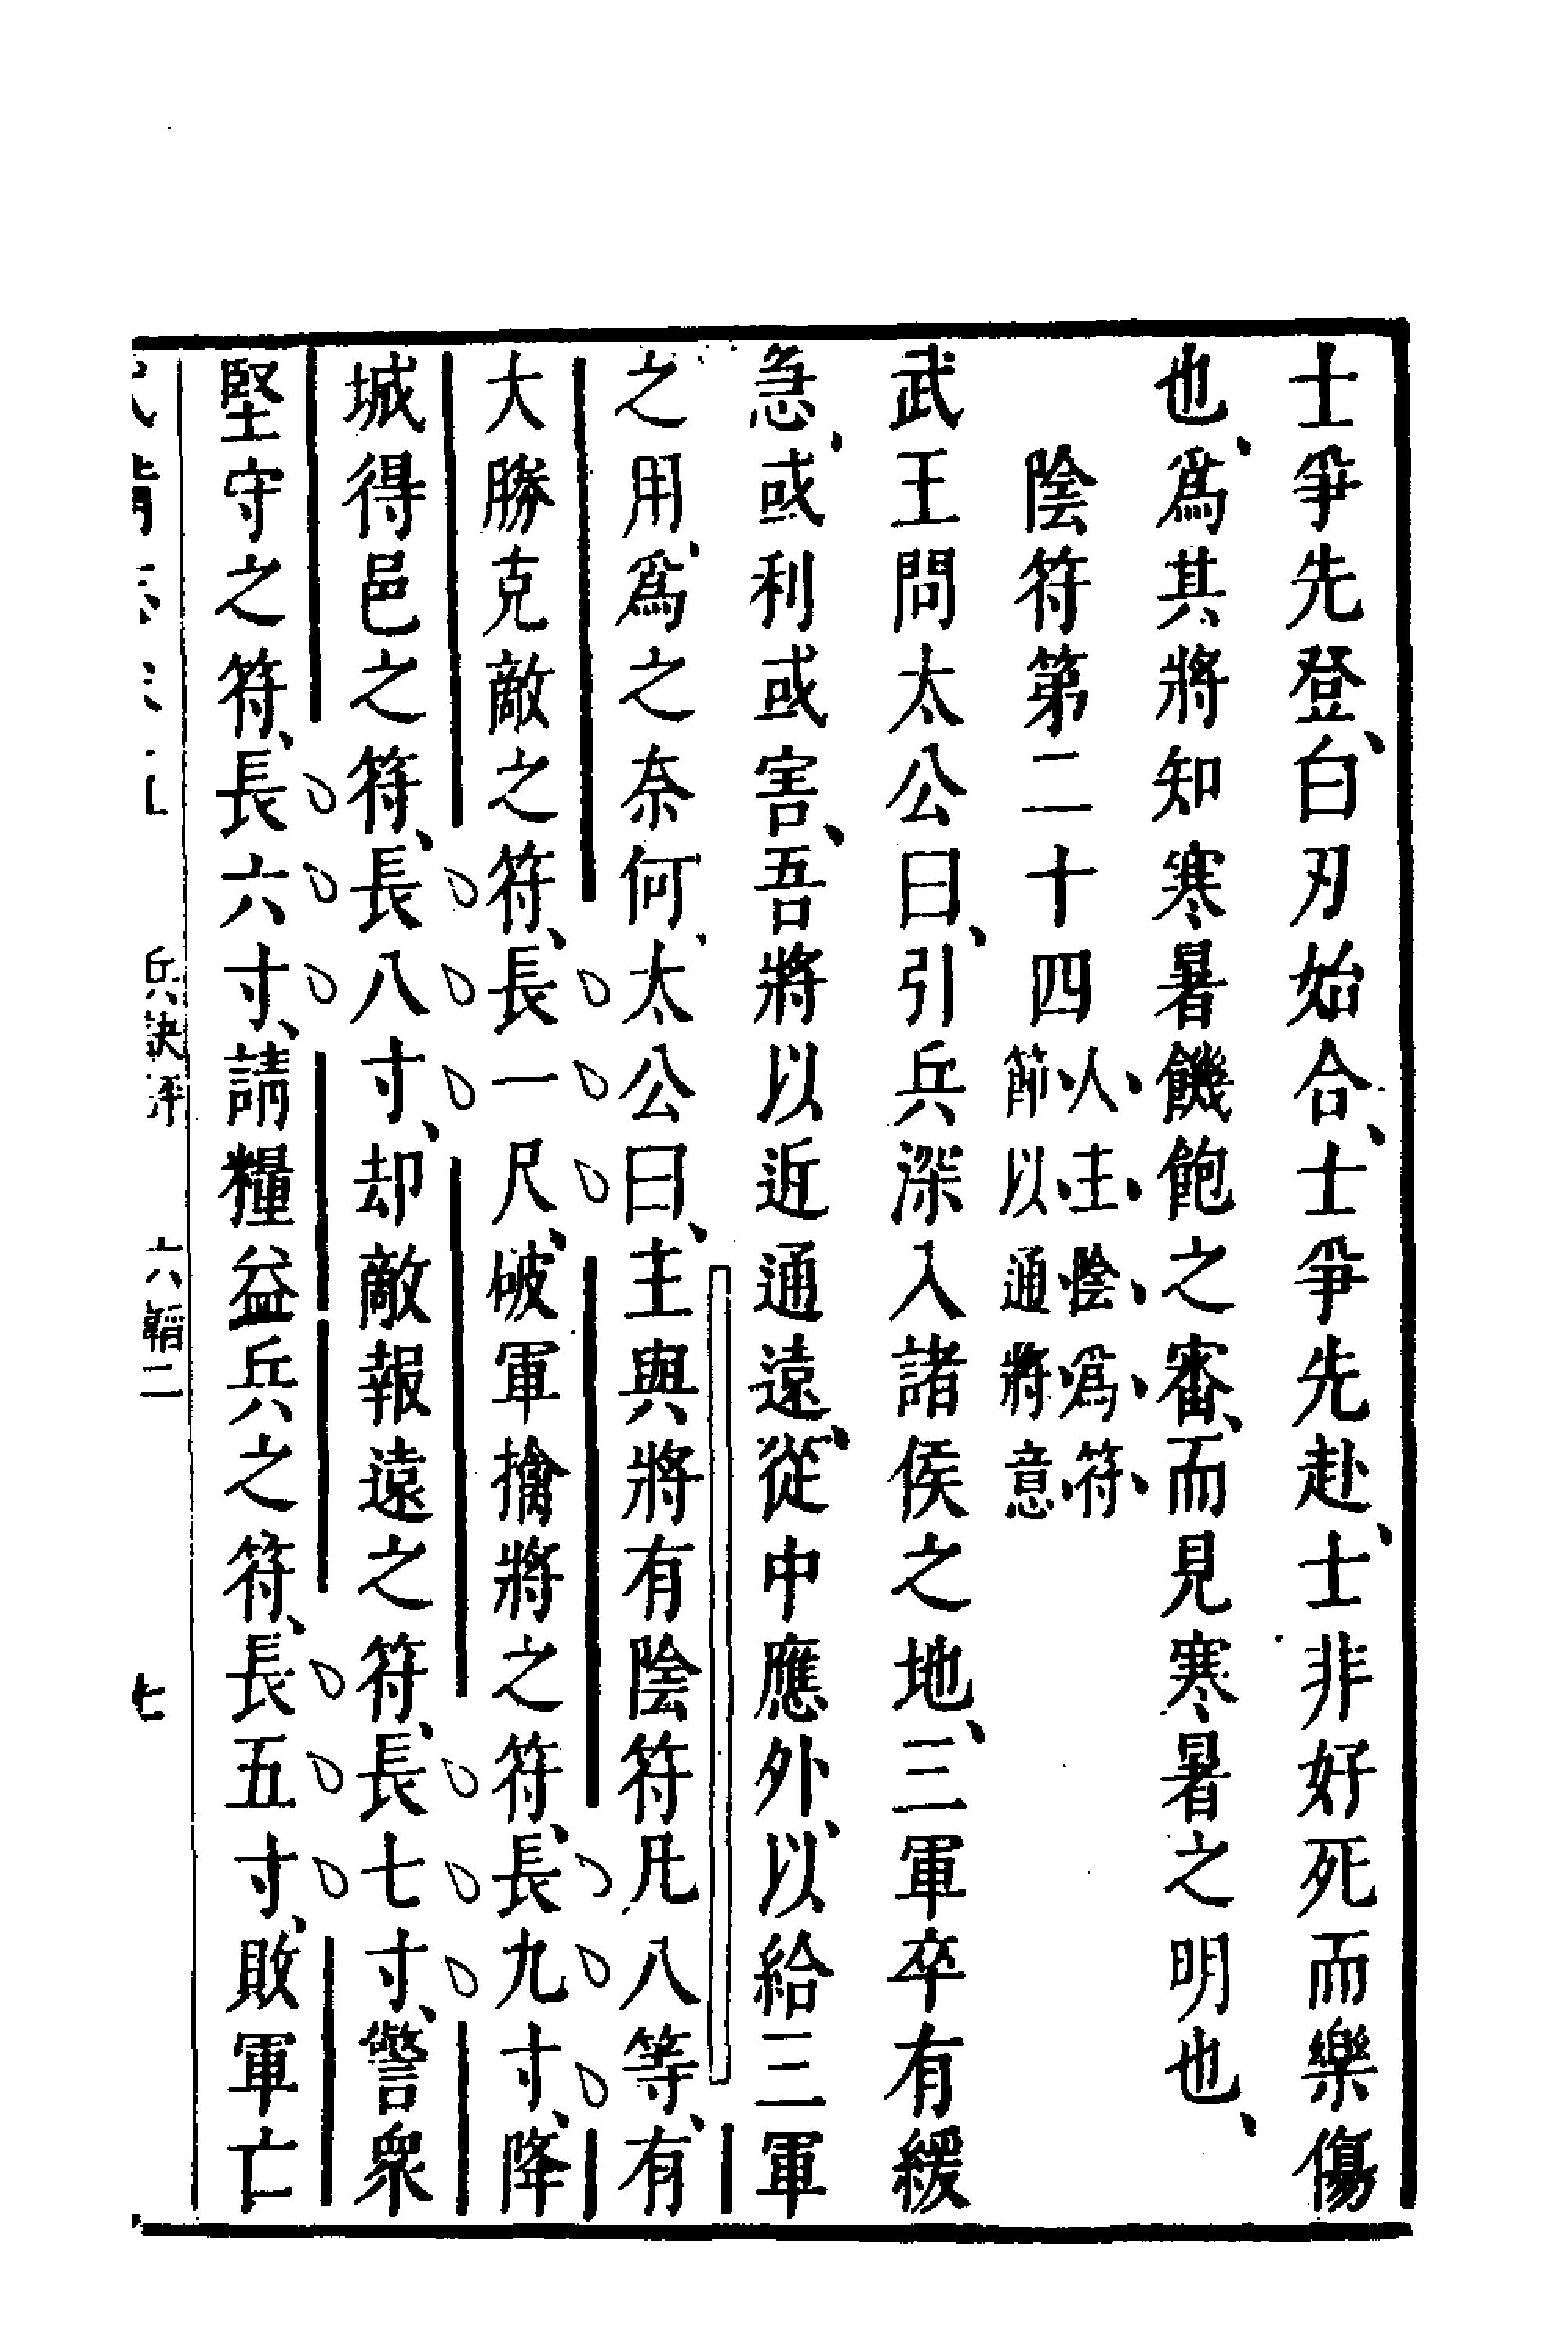 士爭先登、白刃始合、士爭先赴、士非好死而樂傷
也、爲其將知寒暑饑飽之審、而見寒暑之明也、
陰符第二十四
人主陰爲符
節以通將意
武王問太公曰、引兵深入諸侯之地、三軍卒有緩
急、或利或害、吾將以近通遠、從中應外、以給三軍
之用、爲之奈何、太公曰、主與將有陰符凡八等、有
大勝克敵之符、長一尺、破軍擒將之符、長九寸、降
城得邑之符、長八寸、却敵報遠之符、長七寸、警衆
堅守之符、長六寸、請糧益兵之符、長五寸、敗軍亡
兵訣評 六韜二 七